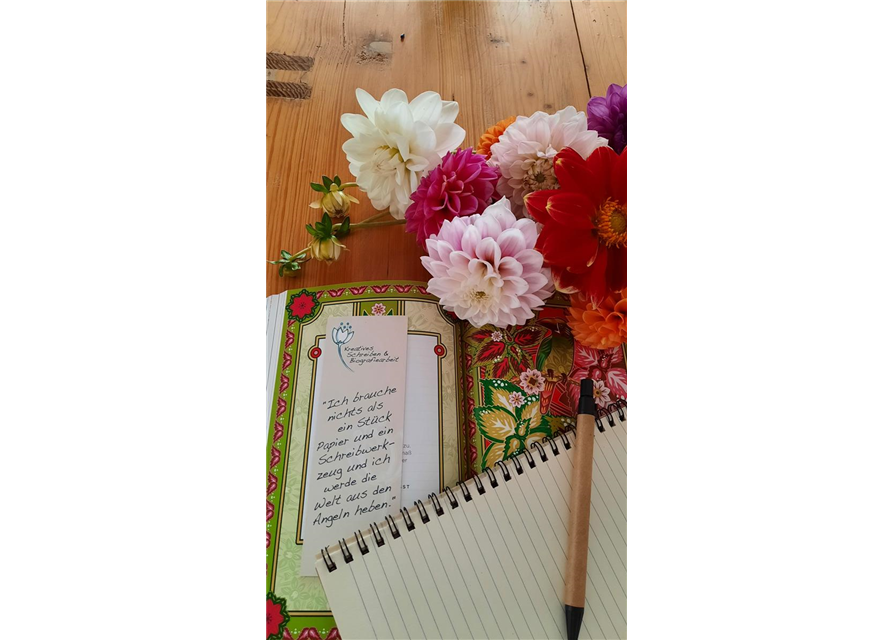 Kreatives
Schreiben &
Biografiearbeit
"Ich brauche
nichts als
ein Stück
Papier und ein
Schreibwerk-
zeug und ich
werde die
Welt aus den
Angeln heben."